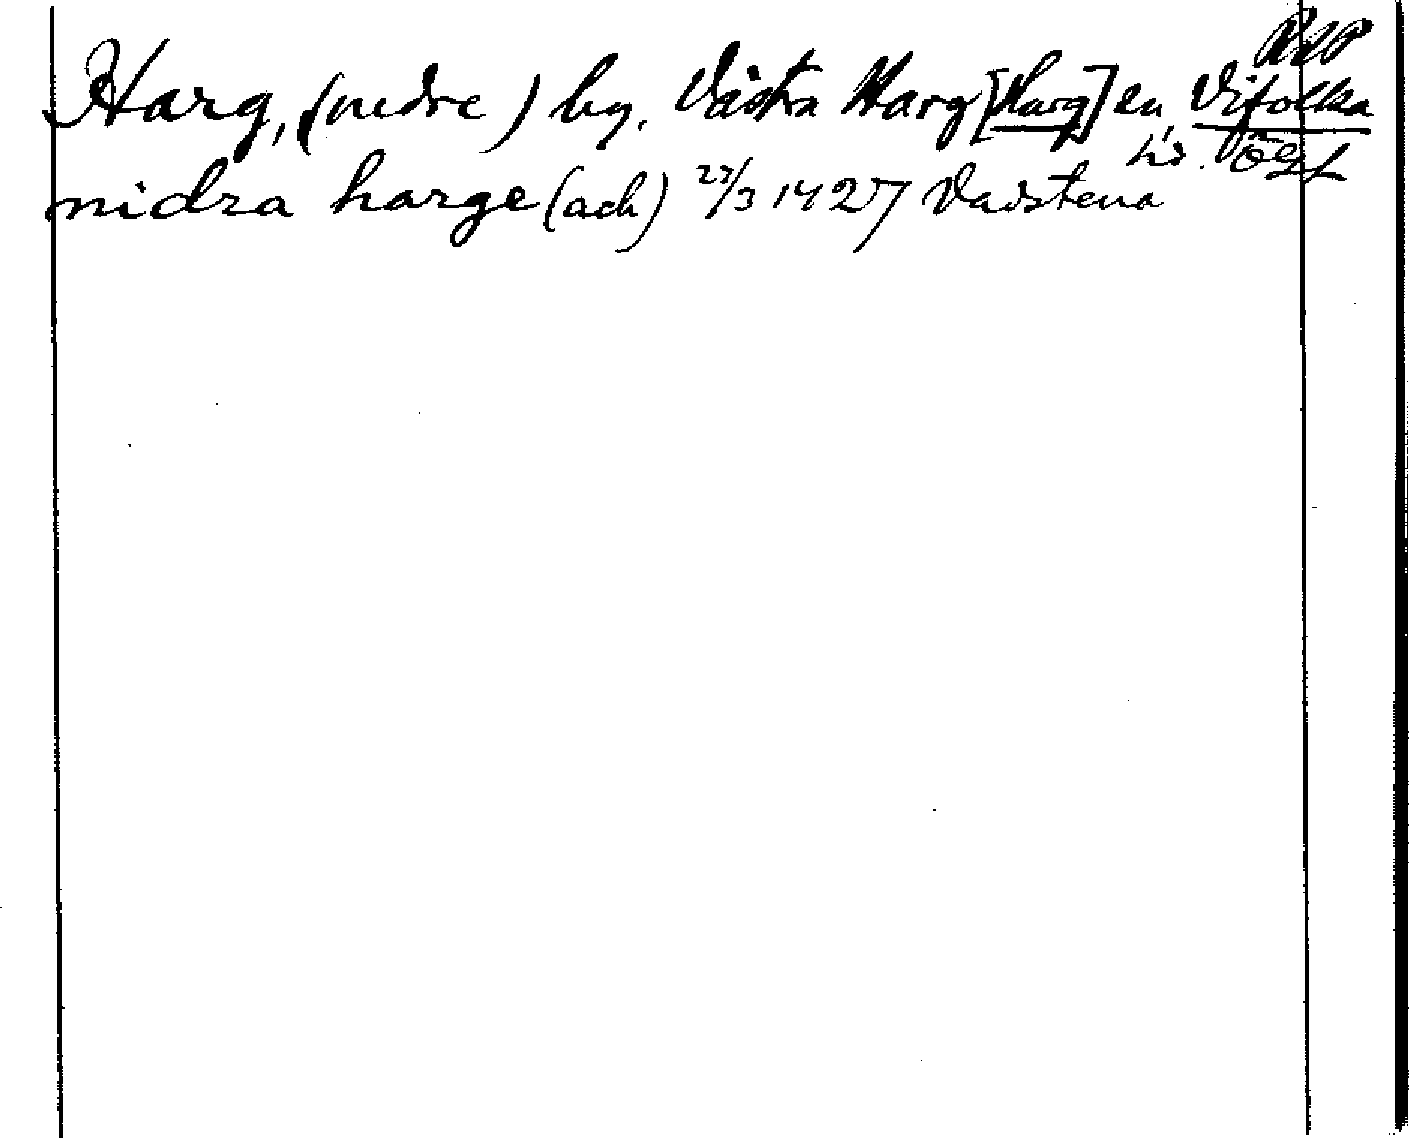 RAP
Harg, (nedre) by. Västra Harg [Harg] sn, Vifolka
hd. Ögl
nidra harge (ack) 23/3 1427 Vadstena